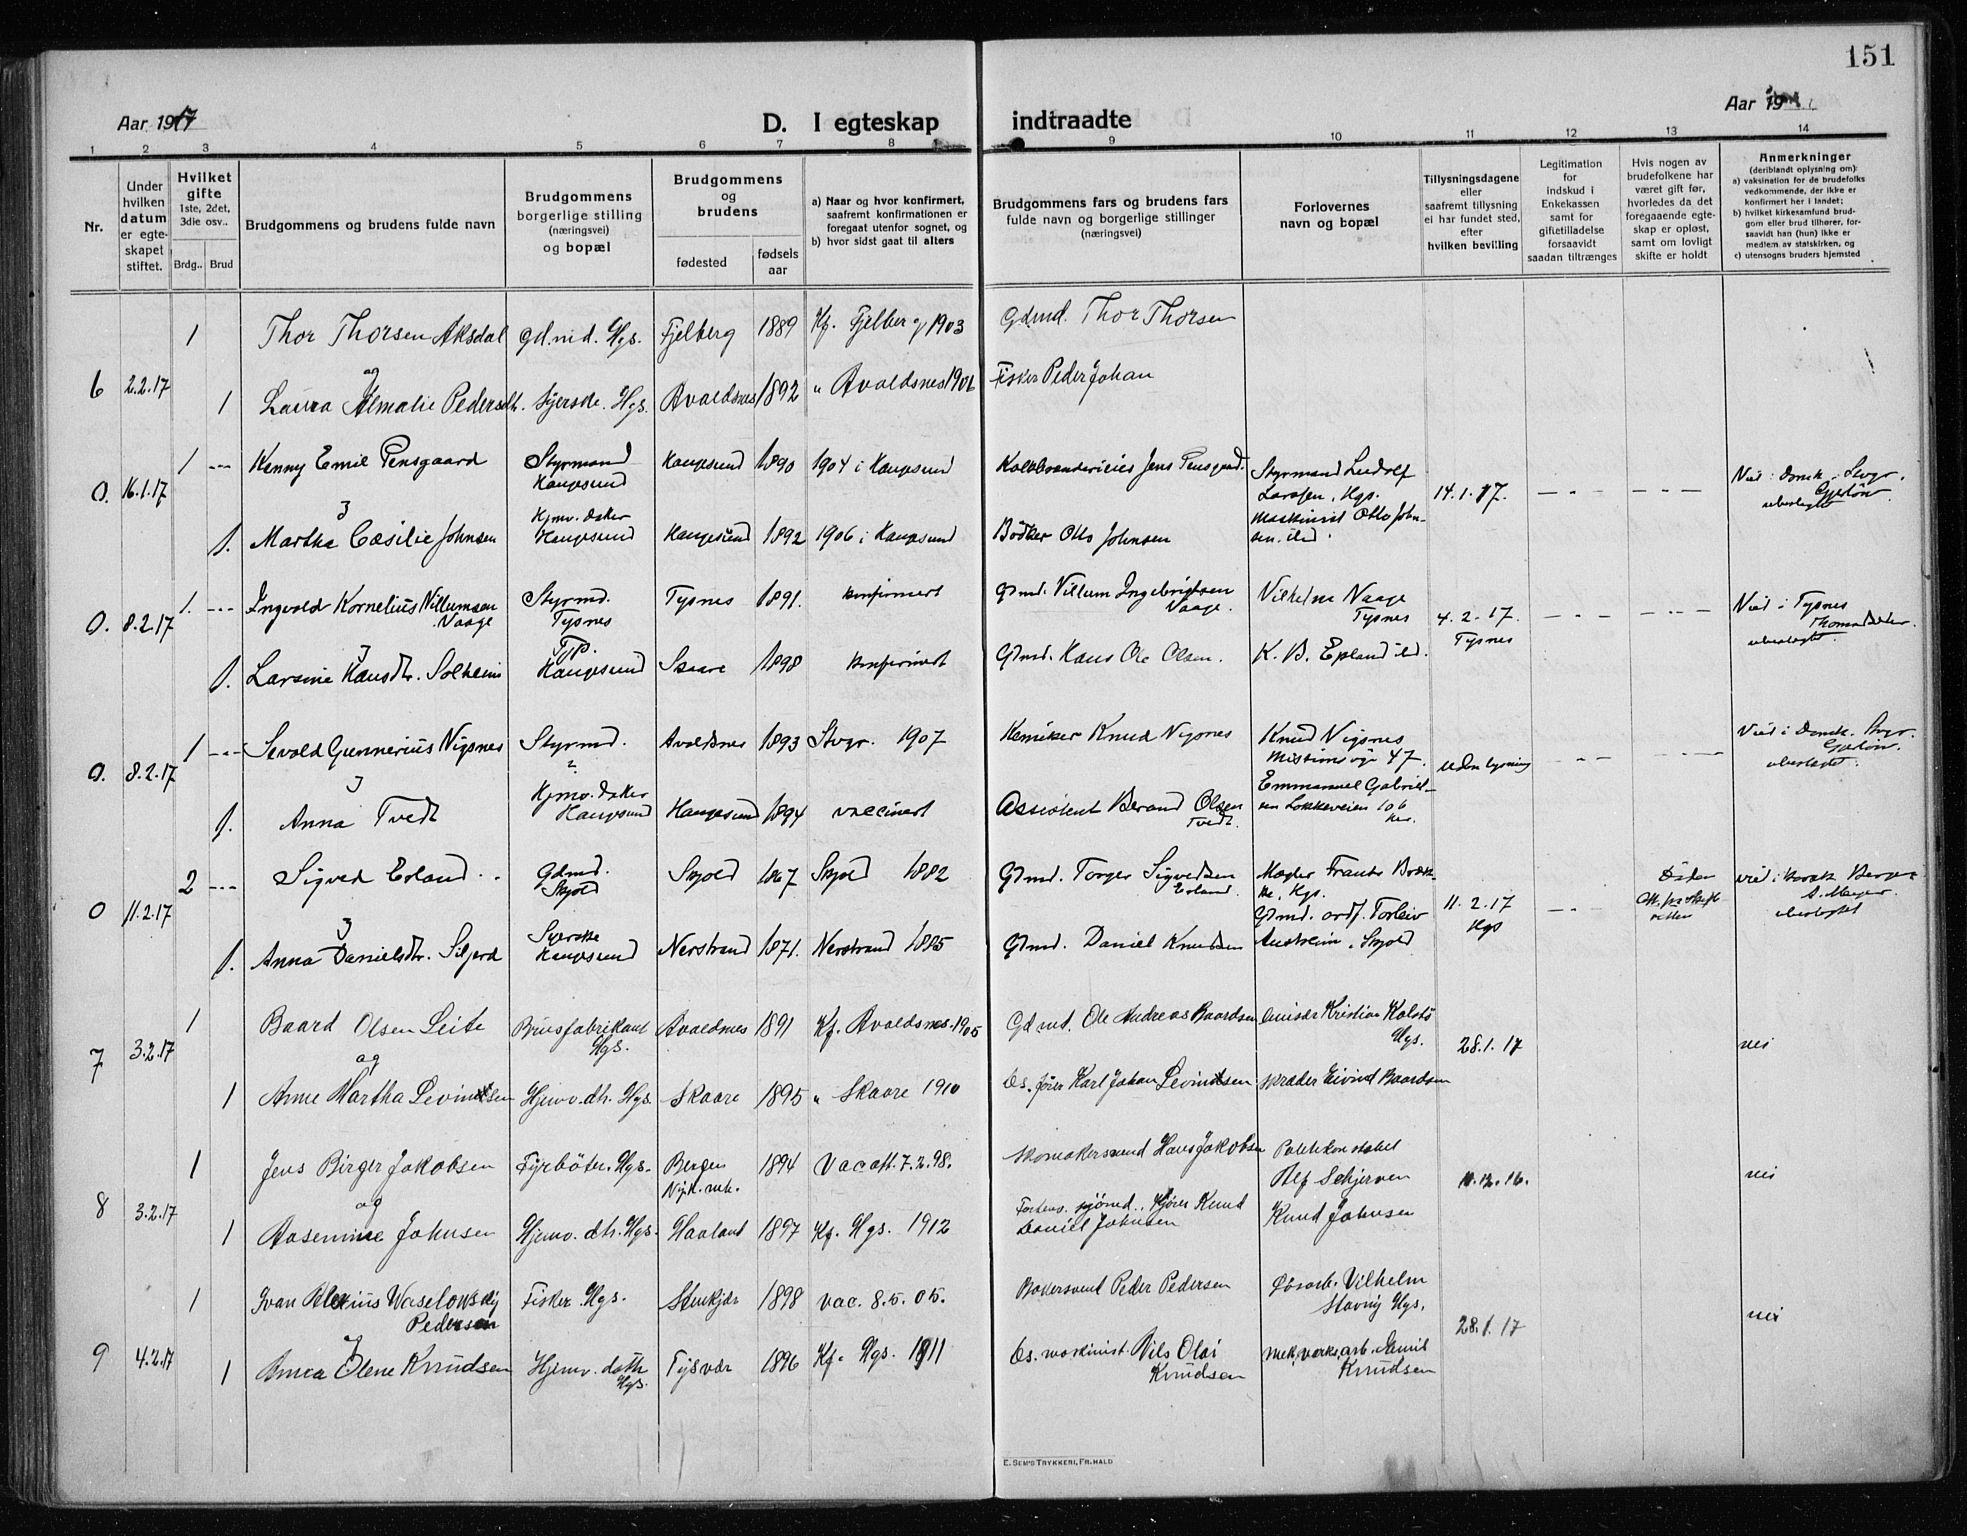 151
Aar 1917
D. I egteskap indtraadte
Aar 19
1 2 3 4 5 6 7 8 9 10 11 12 13 14
Nr.
Under hvilken datum er egteskapet stiftet.
Hvilket gifte 1ste, 2det, 3die osv..
Brdg.. Brud
Brudgommens og brudens fulde navn
Brudgommens borgerlige stilling (næringsvei) og bopæl
Brudgommens og brudens
fødested
fødsels aar
a) Naar og hvor konfirmert, saafremt konfirmationen er foregaat utenfor sognet, og
b) hvor sidst gaat til alters
Brudgommens fars og brudens fars fulde navn og borgerlige stillinger (næringsvei)
Forlovernes navn og bopæl
Tillysningsdagene eller saafremt tillysning ei har fundet sted, efter hvilken bevilling
Legitimation for indskud i Enkekassen samt for giftetilladelse forsaavidt saadan tiltrænges
Hvis nogen av brudefolkene har været gift før, hvorledes da det foregaaende egteskap er opløst, samt om lovligt skifte er holdt
Anmerkninger (deriblandt oplysning om):
a) vaksination for de brudefolks vedkommende, der ikke er konfirmert her i landet;
b) hvilket kirkesamfund brudgom eller brud tilhører, forsaavidt han (hun) ikke er medlem av statskirken, og
c) utensogns bruders hjemsted
1 Thor Thorsen Aksdal Gd.md. Hgs. Fjelberg 1889 Kf. Fjelberg 1903 Gdmd. Thor Thorsen
6 2.2.17 og
1 Laura Almalie Pedersdtr. Syerske. Hgs. Avaldsnes 1892 " Avaldsnes 1906 Fisker Peder Johan
1 --- Kenny Emil Pensgaard Styrmand Haugesund Haugesund 1890 1904 i Haugesund Jens Pensgaard. Styrmand Ludolf Larsen, Hgs.
0. 16.1.17 14.1.17. Viet i Domk. Stvgr.
1. Martha Cæsilie Johnsen Hjmv. datter Haugesund Haugesund 1892 1906 i Haugesund Bødker Otto Johnsen Maskinist Otto Johnsen. ibd.
1. --- Ingvold Kornelius Villumsen Vaage Styrmd. Tysnes Tysnes 1891. konfirmert Gdmd. Villum Ingebrigtsen Vaage. Vilhelm Vaage Tysnes
0. 8.2.17 4.2.17. Tysnes Viet i Tysnes
1. Larsine Hansdtr. Solheim Haugesund Skaare 1898 konfirmert Gdmd. Hans Ole Olsen. K. B. Epland ibd.
1 --- Sevald Gunnerius Vigsnes Styrmd. Avaldsnes 1893 Stvgr. 1907 Kemiker Knud Vigsnes Knud Vigsnes Missionsvei 47.
0. 8.2.17 uden lysning Viet i Domk. Stvgr.
1. Anna Tvedt Hjmv. datter Haugesund Haugesund 1894 vaccinert Assistent Berand Olsen Tvedt. Emmanuel Gabrielsen Lokkeveien 106 her.
2 --- Sigved Erland Gdmd. Skjold Skjold 1867 Skjold 1882 Gdmd. Torger Sigvedsen Erland. Mægler Frantz Brække, Hgs.
0 11.2.17 11.2.17 Hgs
1. Anna Danielsdtr. Syerske Haugesund Nerstrand 1871. Nerstrand 1885 Gdmd. Daniel Knudsen Gdmd. ordf. Torleiv Austreim, Skjold
1 Baard Olsen Leite Brusfabrikant Hgs. Avaldsnes 1891 Kf. Avaldsnes. 1905 Gdmd. Ole Andreas Baardsen Kristian Kolstø Hgs.
7 3.2.17 og 28.1.17 nei
1 Anne Martha Levindsen Hjemv. dtr. Hgs. Skaare 1895 " Skaare 1910 Karl Johan Levindsen Skræder Eivind Baardsen
1 Jens Birger Jakobsen Fyrbøter. Hgs. Bergen 1894 Vacatt. 7.2.98. Skomakersvend Hans Jakobsen Politikonstabel Alf Schjerven
8 3.2.17 og 11.12.16. nei
1 Aasemine Johnsen Hjemv. dtr. Hgs. Haaland 1897 Kf. Hgs. 1912 Knud Daniel Johnsen Knud Johnsen
1 Ivan Alexius Waselowsky Pedersen Fisker Hgs. Stenkjær 1898 vac. 8.5.05. Bakersvend Peder Pedersen Vilhelm Hgs.
9 4.2.17 28.1.17 nei
1 Anna Olene Knudsen Hjemv. datter Hgs. Tysvær 1896 Kf. Hgs. 1911 Nils Olai Knudsen mek. verks. arb. Knudsen
E. SEM'S TRYKKERI, FR.HALD